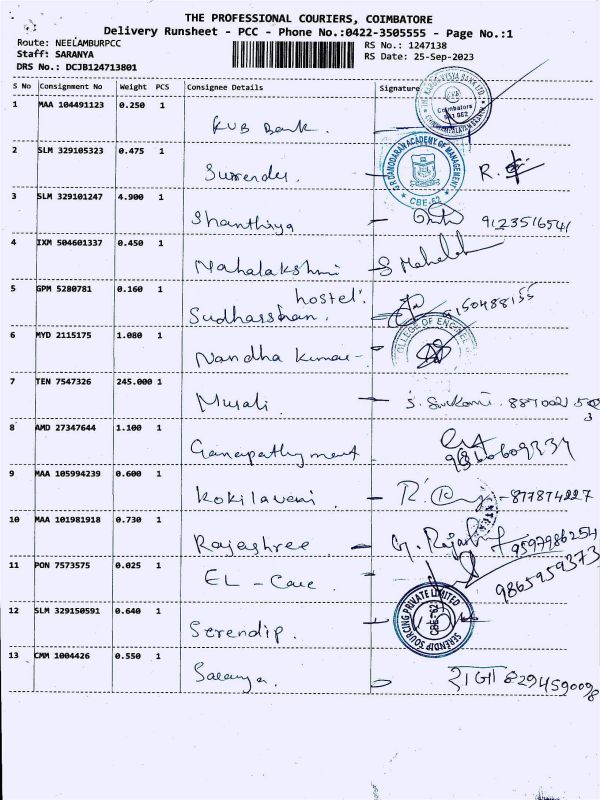 THE PROFESSIONAL COURIERS, COIMBATORE
Delivery Runsheet - PCC - Phone No.:0422-3505555 - Page No.:1
Route: NEELAMBURPCC
RS No.: 1247138
Staff: SARANYA
RS Date: 25-Sep-2023
DRS No.: DCJB124713801
S No Consignment No Weight PCS Consignee Details Signature
1 MAA 104491123 0.250 1
KVB Bank.
2 SLM 329105323 0.475 1
Surrender. R.
3 SLM 329101247 4.900 1
Shanthiya 9123516541
4 IXM 504601337 0.450 1
Mahalakshmi S Mahalak
5 GPM 5280781 0.160 1
hostel.
Sudharsshan. 9150488155
6 MYD 2115175 1.080 1
COLLEGE OF ENGINE
Nandha Kumar
7 TEN 7547326 245.000 1
Murali
8 AMD 27347644 1.100 1
Ganapathy
9 MAA 105994239 0.600 1
Kokilaveni R.
10 MAA 101981918 0.730 1
Rajashree G. 9597986254
11 PON 7573575 0.025 1
EL - Care 9865959373
12 SLM 329150591 0.640 1
SERENDIP SOURCING PRIVATE LIMITED
CBE-62
Serendip.
13 CMM 1004426 0.550 1
Saranya. 8294590098